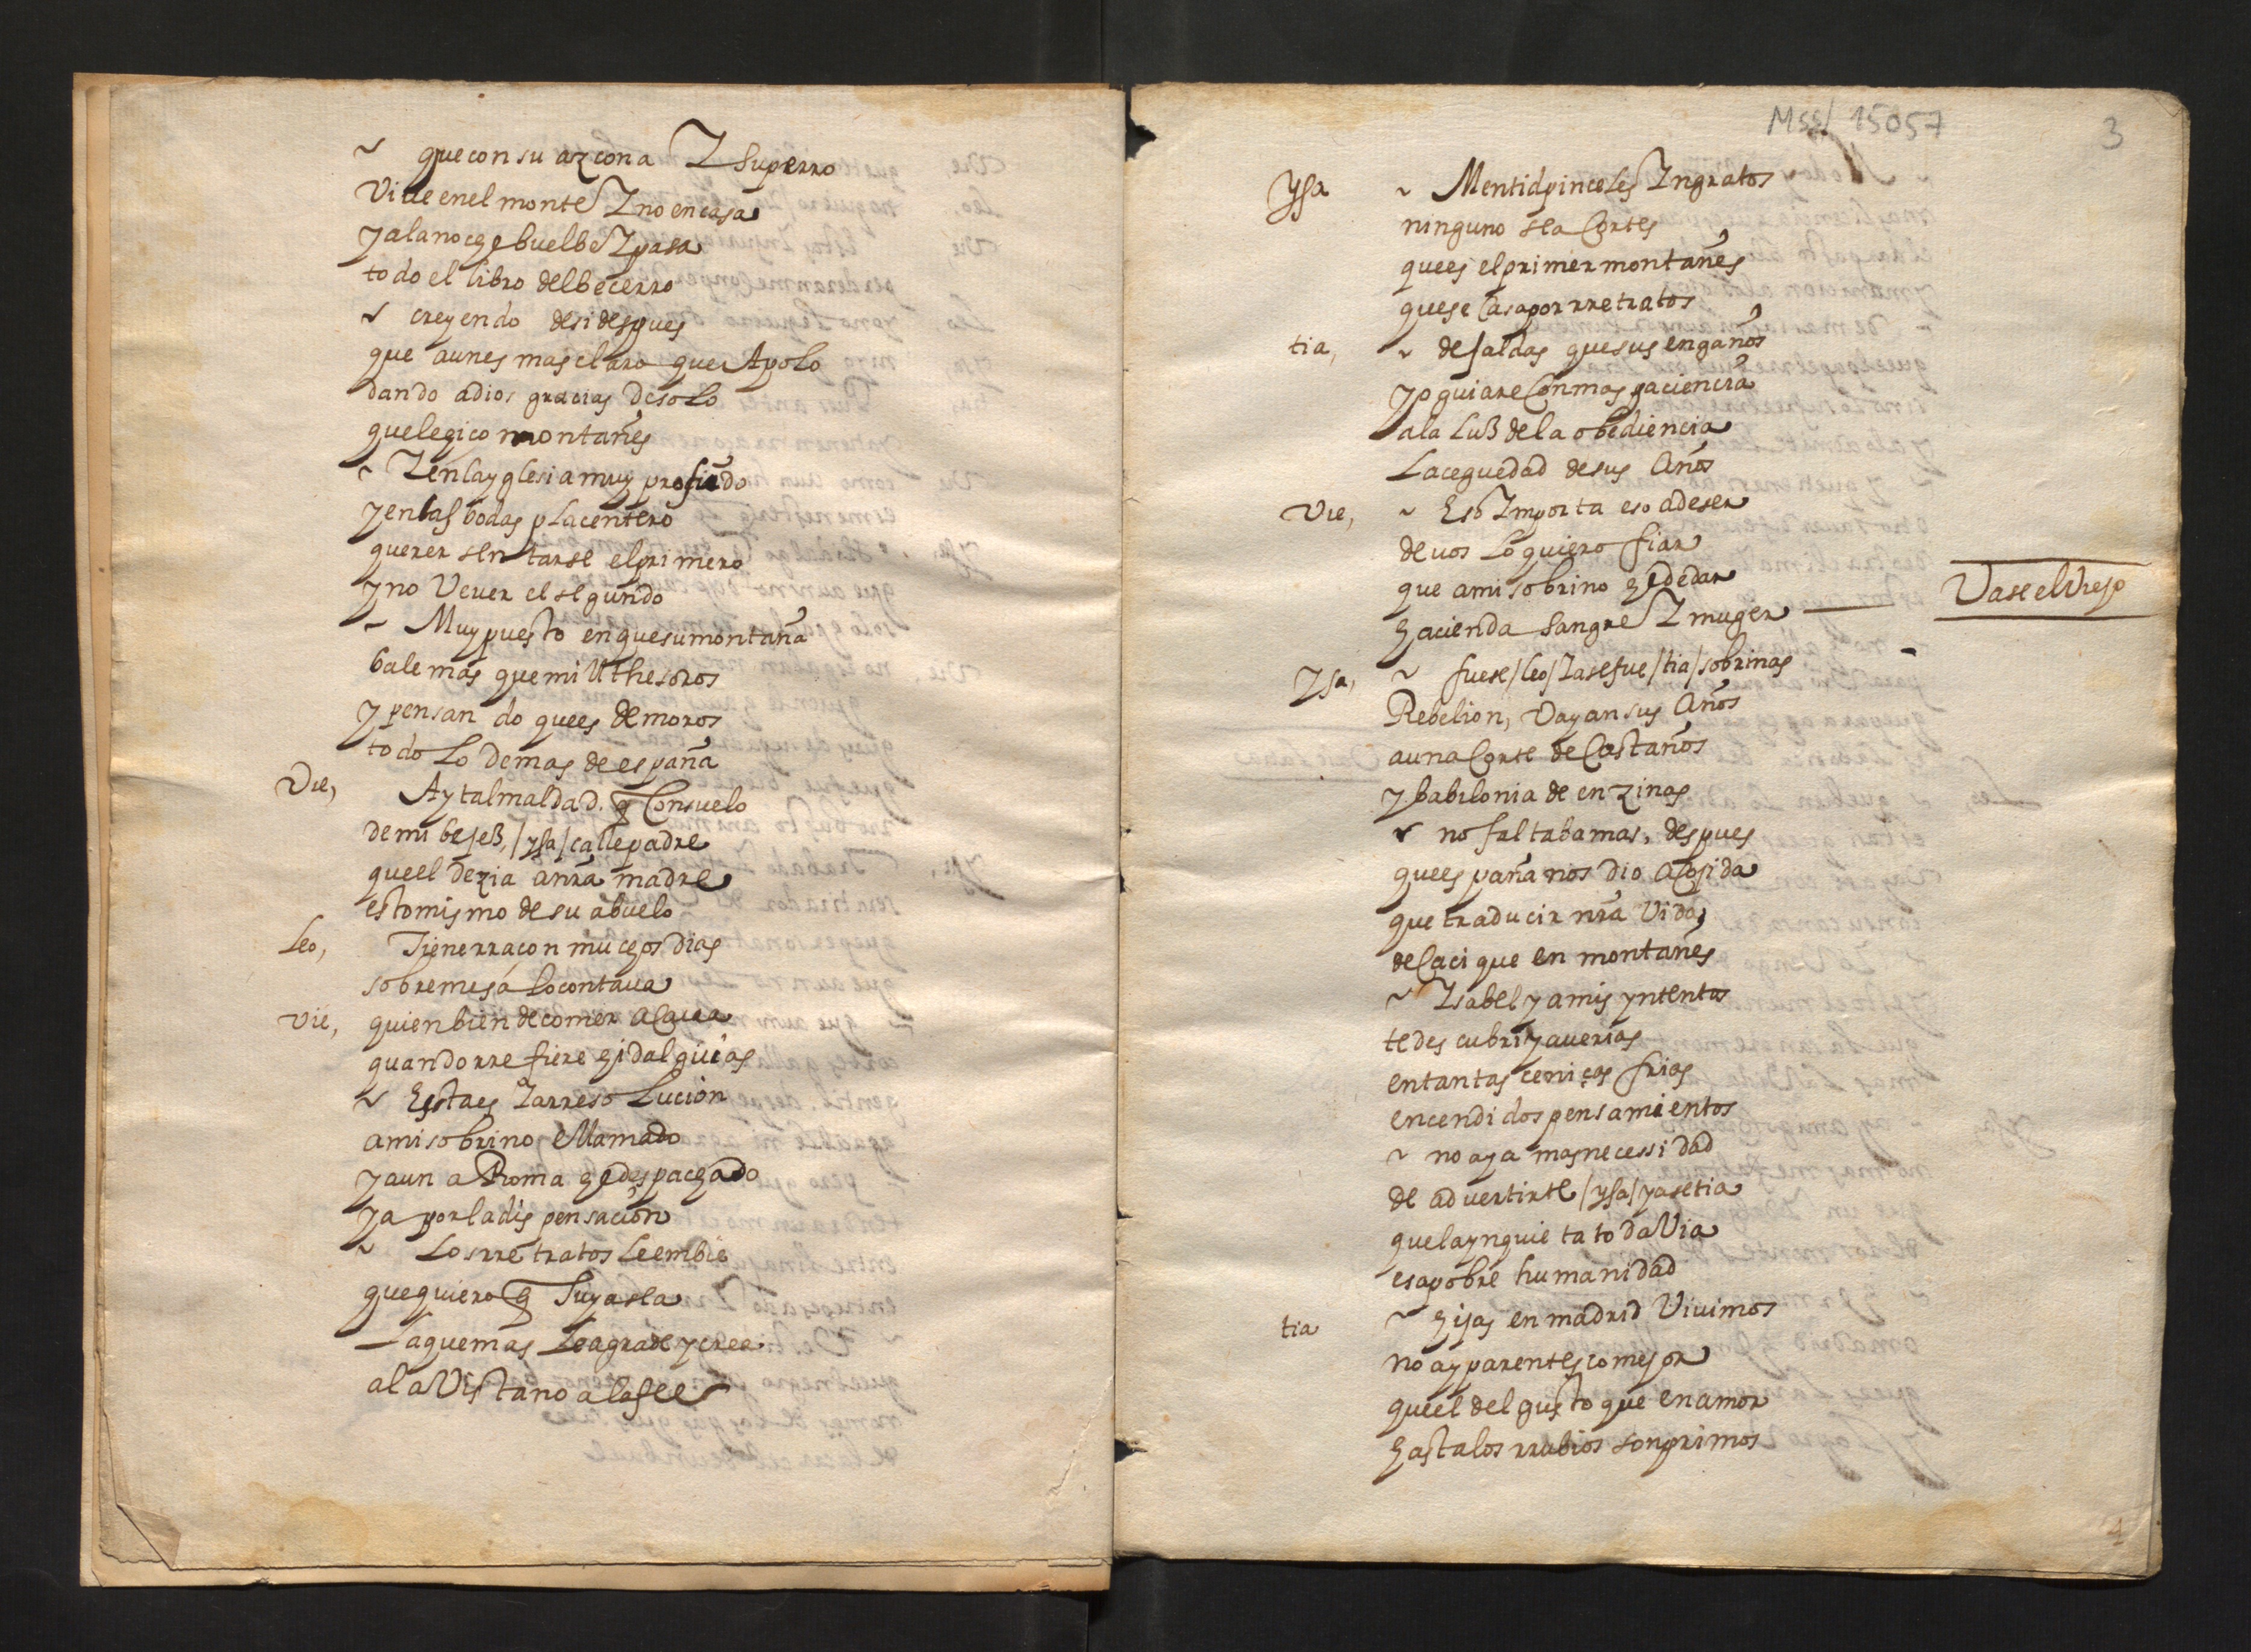 ~ que con su azcona Y su perro
Viue en el monte Y no en casa
y a la noche buelbe Y pasa
todo el libro del becerro
~ creyendo de si despues
que aun es mas claro que Apolo
dando a dios gracias de solo
que le hiço montañes
~ Y en la yglesia muy profūdo
y en las bodas placentero
querer sentarse el primero
y no Veuer el segundo
~ Muy puesto en que su montaña
bale mas que mill thesoros
y pensando que es de moros
todo Lo demas de españa
Vie, Ay tal maldad. q Consuelo
de mi bejeß, /ysa/ calle padre
que el dezia a nr̃a madre
esto mismo de su abuelo
Leo, Tiene rraçon muchos dias
sobremesa lo contaua
vie, quien bien de comer acaua
quando rrefiere hidalguias
~ Esta es Ya rresoLucion
a mi sobrino e llamado
y aun a Roma he despachado
ya por la dispensaçion
~ Los rretratos le embie
que quiero q Suya sea
La que mas Le agrade y crea
a la Vista no a la fee
Mss/ 15057
3
Ysa ~ Mentid pinceles Yngratos
ninguno sea Cortes
que es el primer montañes
que se Casa por rretratos
tia, ~ dejaldas que sus engaños
yo guiare Con mas paciencia
a la Luß de la obediencia
La ceguedad de sus Años
Vie, ~ Eso Ymporta eso a de ser
de uos Lo quiero fiar
que a mi sobrino he de dar
hacienda sangre Y muger — Vase el Viejo
Ysa, ~ fuese /Leo/ Ya se fue /tia/ sobrinas
Rebelion, Vayan sus Años
a una Corte de Castaños
y babilonia de enzinas
~ no faltaba mas, despues
que españa nos dio acojida
que traducir nr̃a Vida,
de Cacique en montañes
~ Ysabel y a mis yntentos
te descubri y auerias
en tantas ceniças frias
encendidos pensamientos
~ no aya mas necessidad
de advertirte /ysa/ ya se tia
que la ynquieta toda Via
esa pobre humanidad
tia ~ hijas en madrid Viuimos
no ay parentesco mejor
que el del gusto que en amor
hasta los rrubios son primos
4